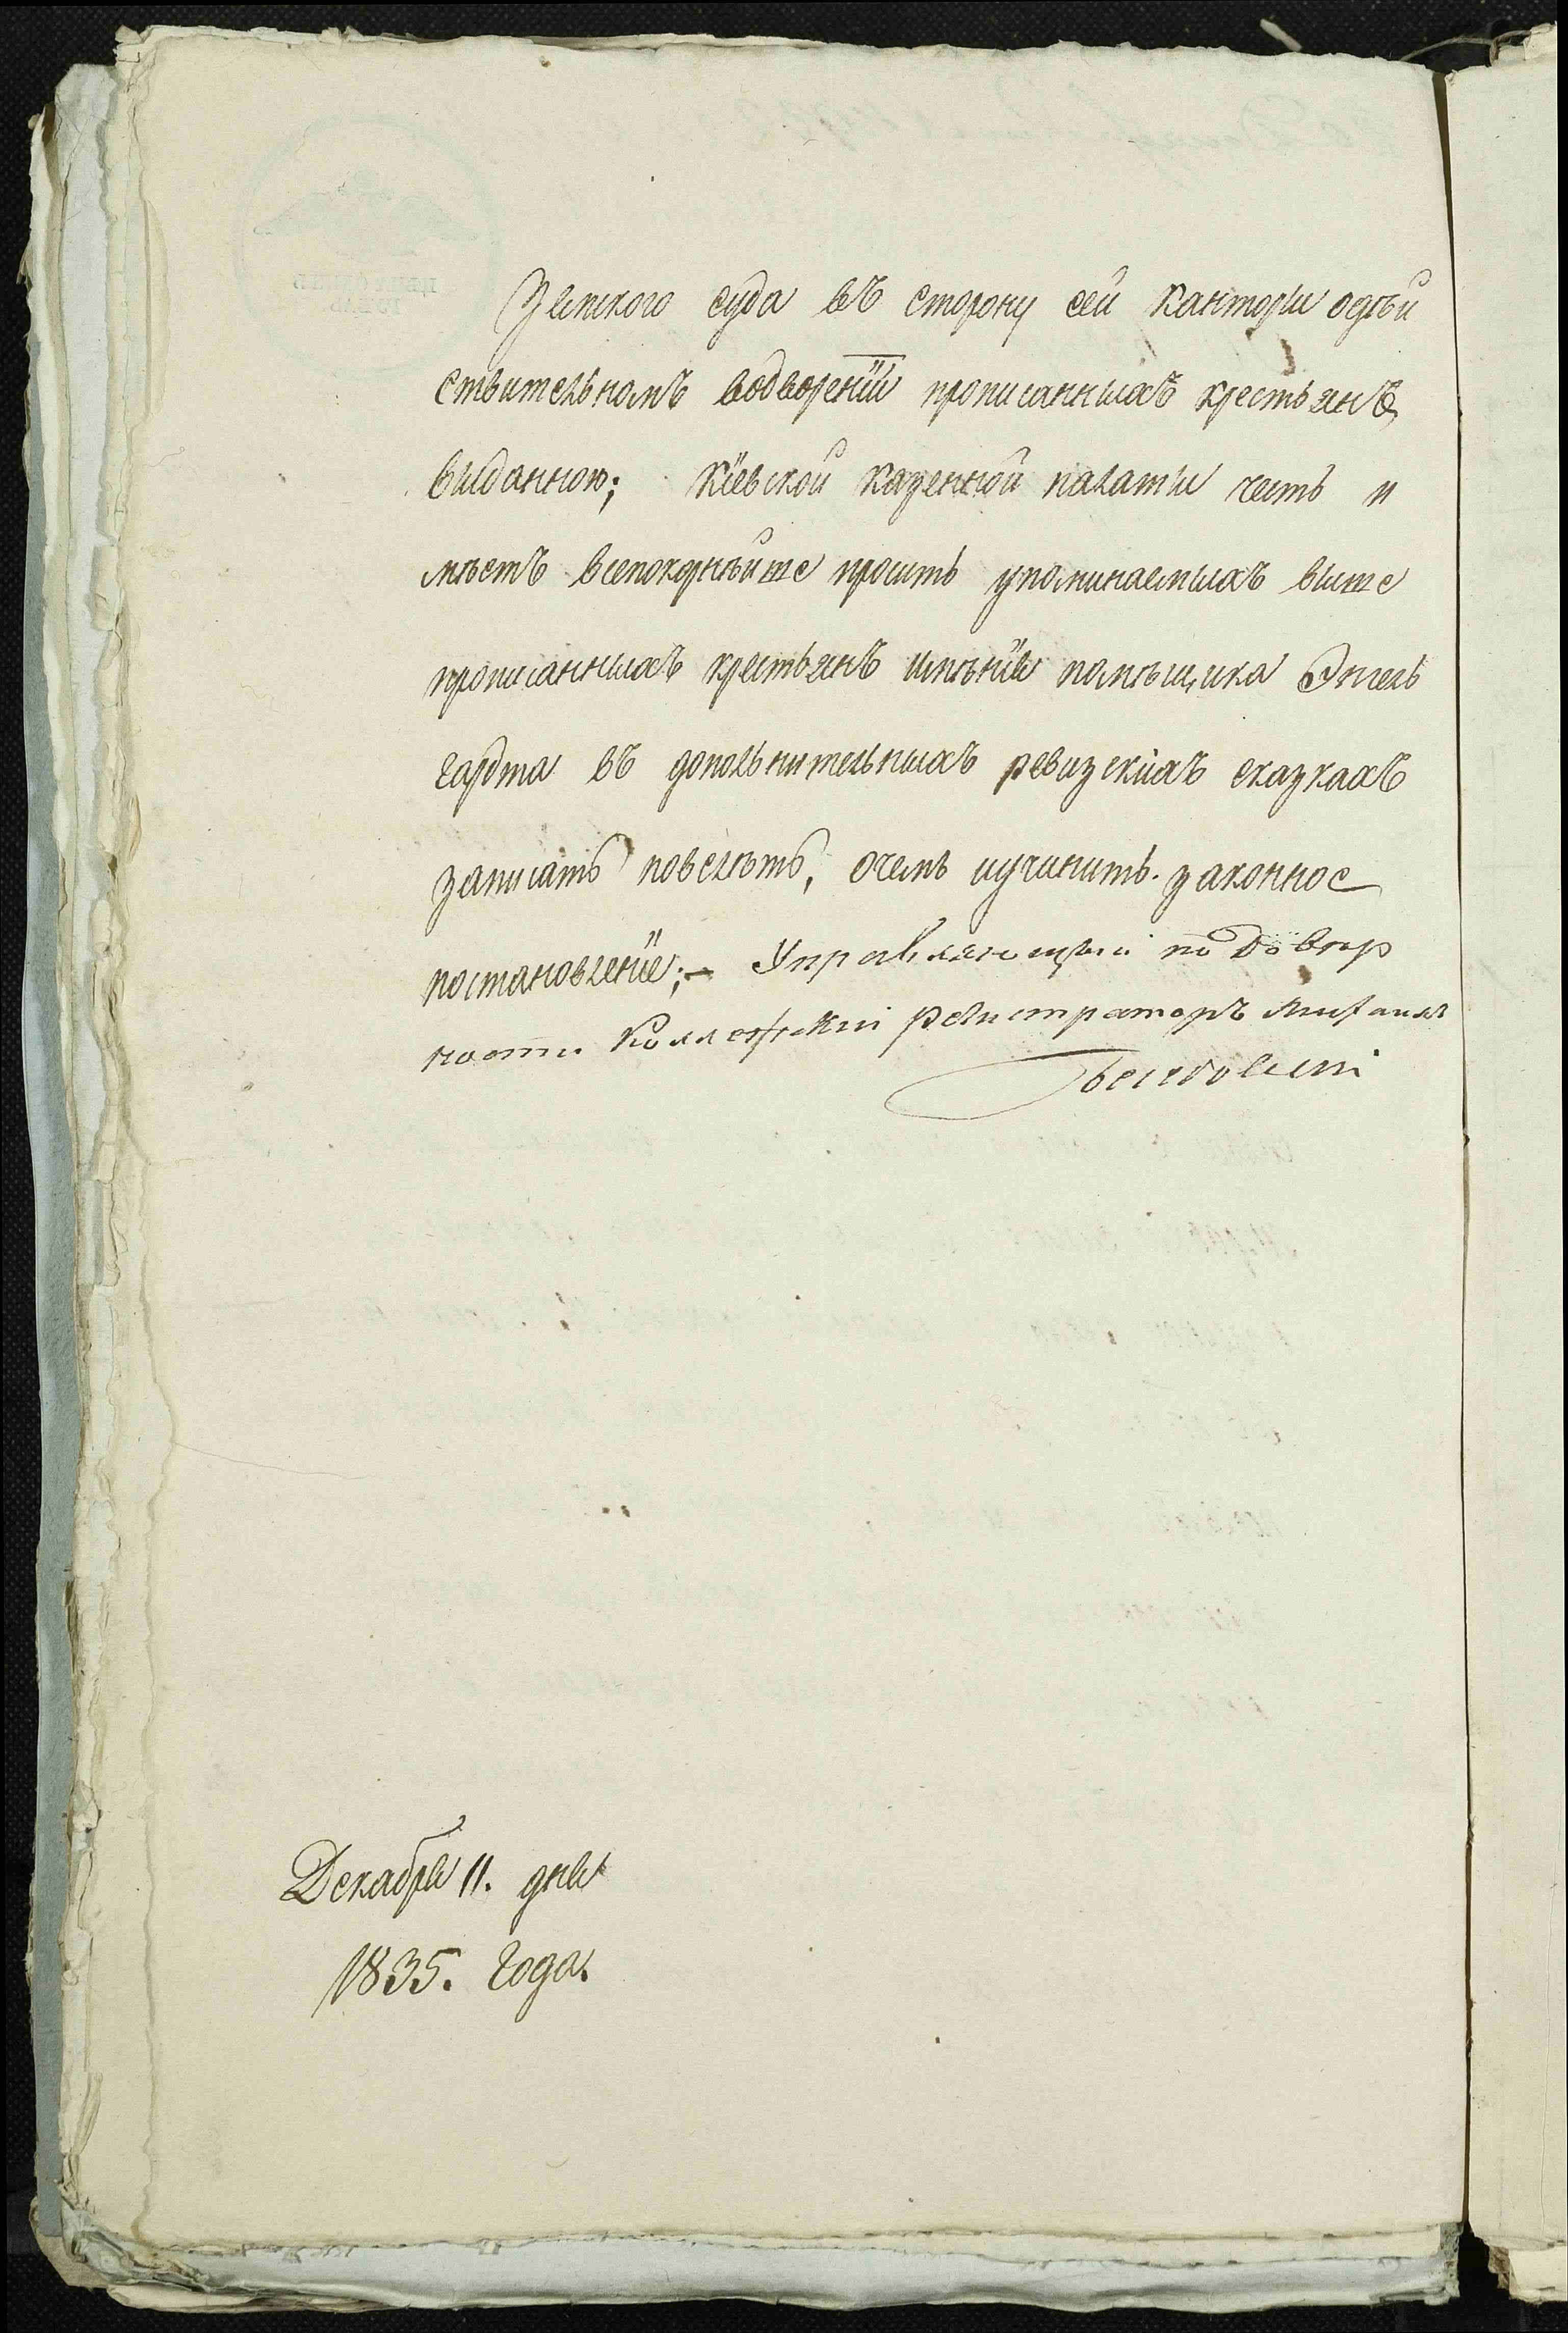 Земского суда въ сторону сей канторы одѣй
ствительномъ водвореніи прописанныхъ крестьянъ,
выданною; Кіевской казенной палаты честь и
мѣетъ всепокорнѣйше просить упоминаемыхъ выше
прописанныхъ крестьянъ имѣнія помѣщика Энгель
гардта въ дополнительныхъ ревизскихъ сказкахъ
записать повелѣть, очемъ иучинить законное
постановленіе;– Управляющій по довѣр
ности Коллежскій регистраторъ Михаилъ
Декабря 11. дня
1835. года.